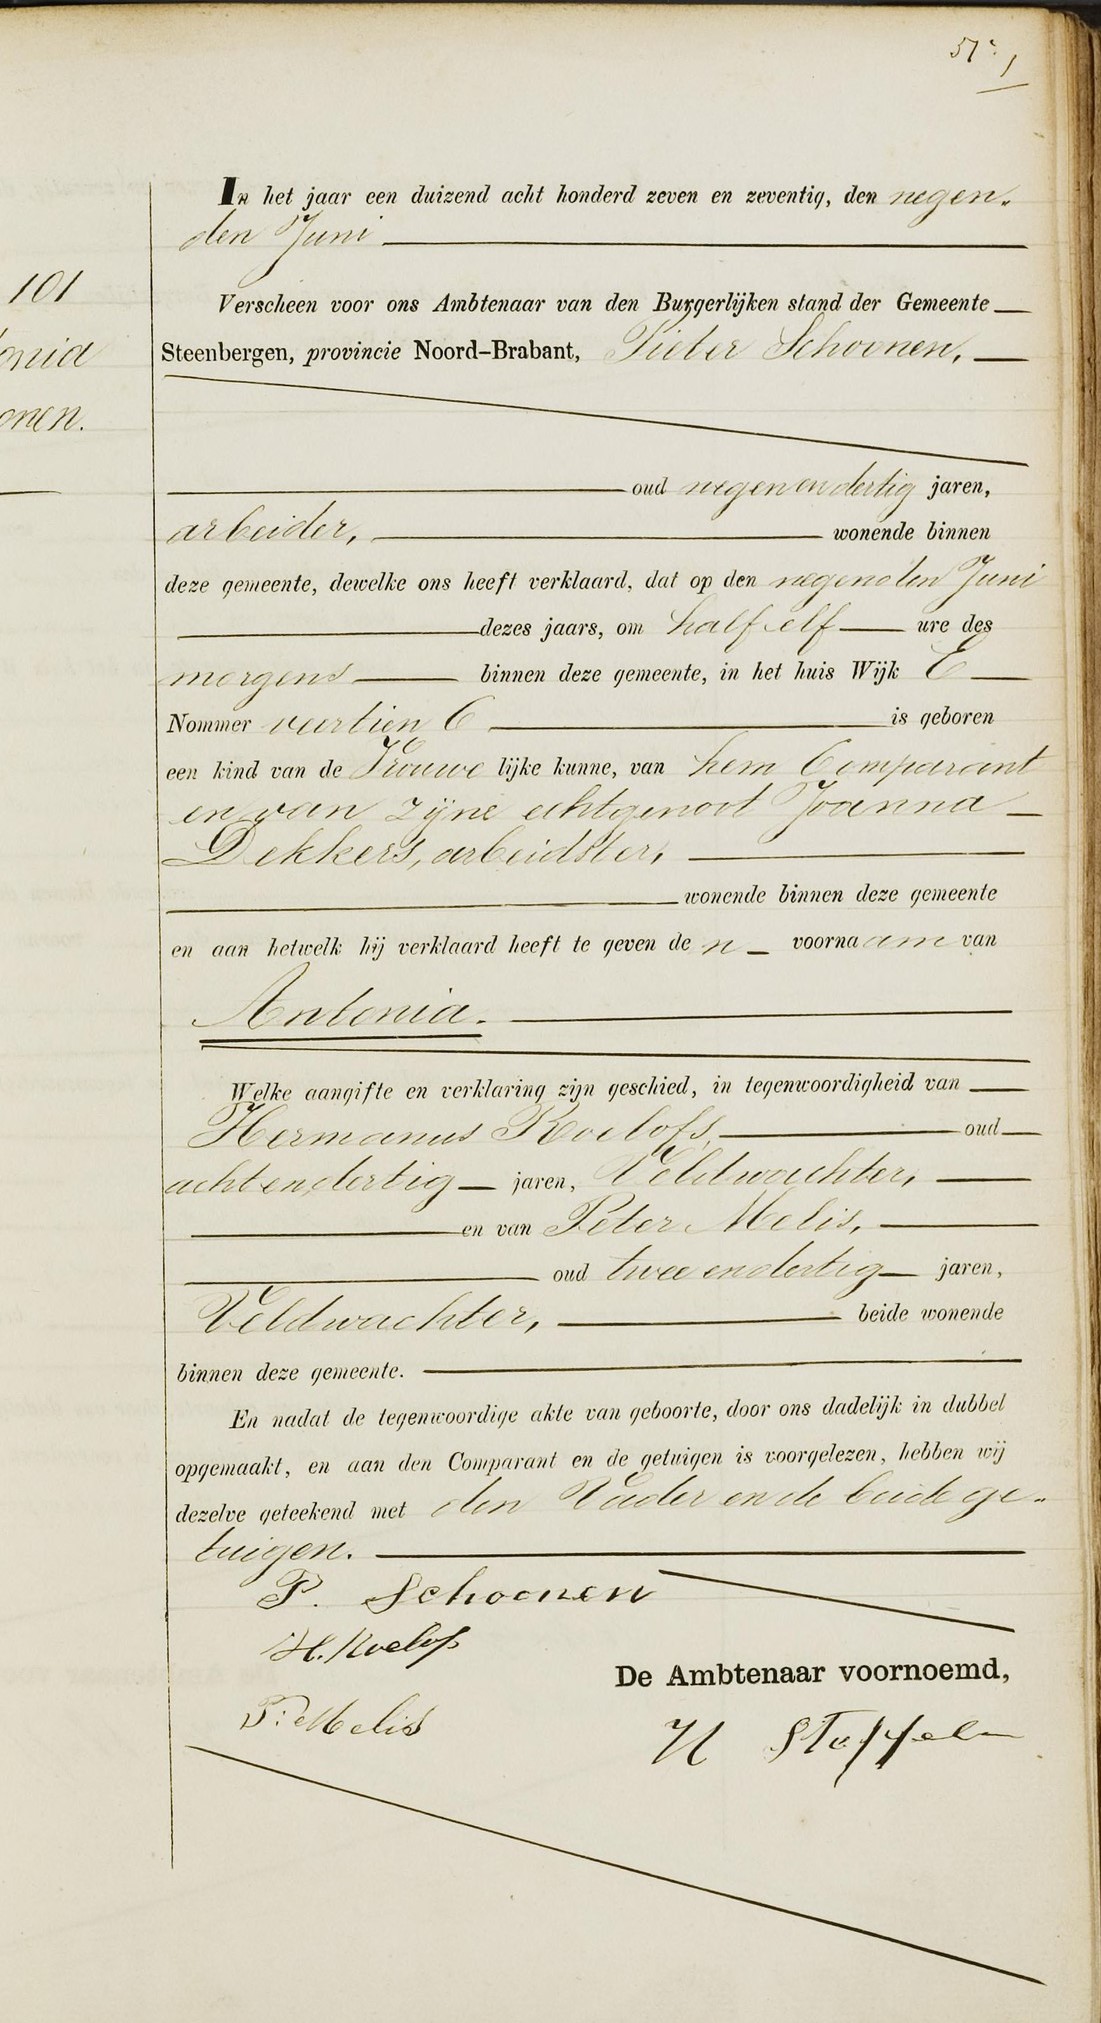 51
In het jaar een duizend acht honderd zeven en zeventig, den negen-
den Juni
101
Verscheen voor ons Ambtenaar van den Burgerlijken stand der Gemeente
onia
Steenbergen, provincie Noord-Brabant, Pieter Schoonen,
onen.
oud negenendertig jaren,
arbeider, wonende binnen
deze gemeente, dewelke ons heeft verklaard, dat op den negenden Juni
dezes jaars, om half elf ure des
morgens binnen deze gemeente, in het huis Wijk E
Nommer veertien C is geboren
een kind van de Vrouwe lijke kunne, van hem Comparant
en van zijne echtgenoot Joanna
Dekkers, arbeidster,
wonende binnen deze gemeente
en aan hetwelk hij verklaard heeft te geven de n voornaam van
Antonia.
Welke aangifte en verklaring zijn geschied, in tegenwoordigheid van
Hermanus Roelofs, oud
achtendertig jaren, Veldwachter,
en van Peter Melis,
oud tweeendertig jaren,
Veldwachter, beide wonende
binnen deze gemeente.
En nadat de tegenwoordige akte van geboorte, door ons dadelijk in dubbel
opgemaakt, en aan den Comparant en de getuigen is voorgelezen, hebben wij
dezelve geteekend met den Vader en de beide ge-
tuigen.
P. Schoonen
H. Roelofs
De Ambtenaar voornoemd,
P. Melis